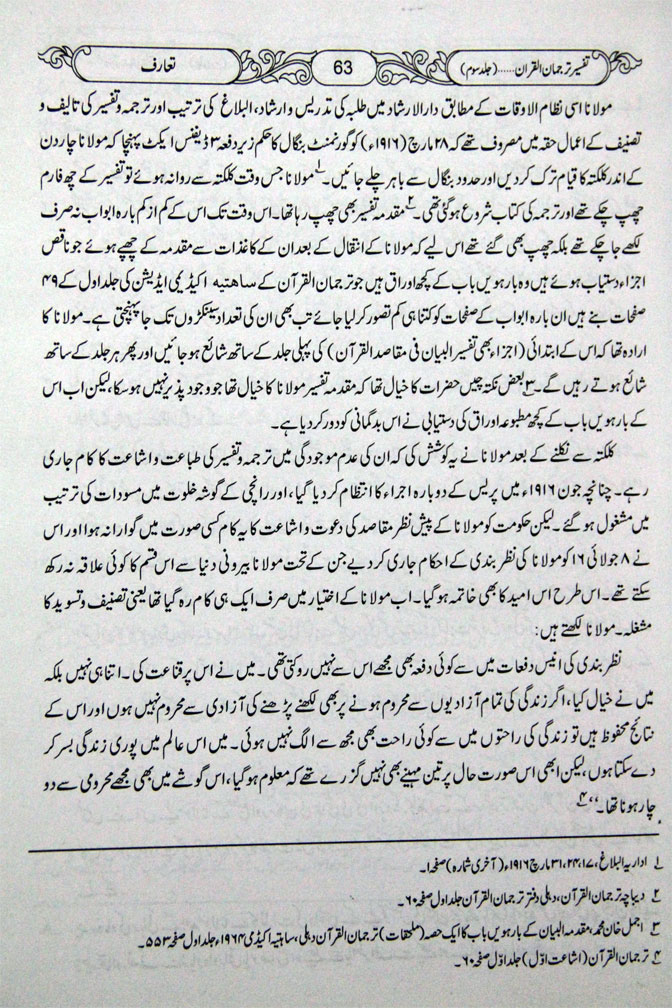 تفسیر ترجمان القرآن......(جلد سوم)
63
تعارف
مولانا اسی نظام الاوقات کے مطابق دارالارشاد میں طلبہ کی تدریس و ارشاد، البلاغ کی ترتیب اور ترجمہ و تفسیر کی تالیف و
تصنیف کے اعمال حقہ میں مصروف تھے کہ ۲۸ مارچ (۱۹۱۶ء) کو گورنمنٹ بنگال کا حکم زیر دفعہ ۳ ڈیفنس ایکٹ پہنچا کہ مولانا چار دن
کے اندر کلکتہ کا قیام ترک کر دیں اور حدود بنگال سے باہر چلے جائیں۔۱ مولانا جس وقت کلکتہ سے روانہ ہوئے تو تفسیر کے چھ فارم
چھپ چکے تھے اور ترجمہ کی کتاب شروع ہو گئی تھی۔۲ مقدمہ تفسیر بھی چھپ رہا تھا۔ اس وقت تک اس کے کم از کم بارہ ابواب نہ صرف
لکھے جا چکے تھے بلکہ چھپ بھی گئے تھے اس لیے کہ مولانا کے انتقال کے بعد ان کے کاغذات سے مقدمہ کے چھپے ہوئے جو ناقص
اجزاء دستیاب ہوئے ہیں وہ بارہویں باب کے کچھ اوراق ہیں جو ترجمان القرآن کے ساھتیہ اکیڈیمی ایڈیشن کی جلد اول کے ۴۹
صفحات بنے ہیں ان بارہ ابواب کے صفحات کو کتنا ہی کم تصور کر لیا جائے تب بھی ان کی تعداد سینکڑوں تک جا پہنچتی ہے۔ مولانا کا
ارادہ تھا کہ اس کے ابتدائی (اجزاء بھی تفسیر البیان فی مقاصد القرآن) کی پہلی جلد کے ساتھ شائع ہو جائیں اور پھر ہر جلد کے ساتھ
شائع ہوتے رہیں گے۔۳ بعض نکتہ چیں حضرات کا خیال تھا کہ مقدمہ تفسیر مولانا کا خیال تھا جو وجود پذیر نہیں ہو سکا، لیکن اب اس
کے بارہویں باب کے کچھ مطبوعہ اوراق کی دستیابی نے اس بدگمانی کو دور کر دیا ہے۔
کلکتہ سے نکلنے کے بعد مولانا نے یہ کوشش کی کہ ان کی عدم موجودگی میں ترجمہ و تفسیر کی طباعت و اشاعت کا کام جاری
رہے۔ چنانچہ جون ۱۹۱۶ء میں پریس کے دوبارہ اجراء کا انتظام کر دیا گیا، اور رانچی کے گوشہ خلوت میں مسودات کی ترتیب
میں مشغول ہو گئے۔ لیکن حکومت کو مولانا کے پیش نظر مقاصد کی دعوت و اشاعت کا یہ کام کسی صورت میں گوارا نہ ہوا اور اس
نے ۸ جولائی ۱۶ کو مولانا کی نظر بندی کے احکام جاری کر دیے جن کے تحت مولانا بیرونی دنیا سے اس قسم کا کوئی علاقہ نہ رکھ
سکتے تھے۔ اس طرح اس امید کا بھی خاتمہ ہو گیا۔ اب مولانا کے اختیار میں صرف ایک ہی کام رہ گیا تھا یعنی تصنیف و تسوید کا
مشغلہ۔ مولانا لکھتے ہیں:
نظر بندی کی انیس دفعات میں سے کوئی دفعہ بھی مجھے اس سے نہیں روکتی تھی۔ میں نے اس پر قناعت کی۔ اتنا ہی نہیں بلکہ
میں نے خیال کیا، اگر زندگی کی تمام آزادیوں سے محروم ہونے پر بھی لکھنے پڑھنے کی آزادی سے محروم نہیں ہوں اور اس کے
نتائج محفوظ ہیں تو زندگی کی راحتوں میں سے کوئی راحت بھی مجھ سے الگ نہیں ہوئی۔ میں اس عالم میں پوری زندگی بسر کر
دے سکتا ہوں، لیکن ابھی اس صورت حال پر تین مہینے بھی نہیں گزرے تھے کہ معلوم ہو گیا، اس گوشے میں بھی مجھے محرومی سے دو
چار ہونا تھا۔“۴
۱ اداریہ البلاغ، ۱۷، ۲۴، ۳۱ مارچ ۱۹۱۶ء (آخری شمارہ) صفحہ ا۔
۲ دیباچہ ترجمان القرآن، دہلی دفتر ترجمان القرآن جلد اول صفحہ ۶۰۔
۳ اجمل خان محمد، مقدمہ البیان کے بارہویں باب کا ایک حصہ (ملحقات) ترجمان القرآن دہلی، ساہتیہ اکیڈمی ۱۹۶۴ء، جلد اول صفحہ ۵۵۳
۴ ترجمان القرآن (اشاعت اوّل) جلد اوّل صفحہ ۶۰۔